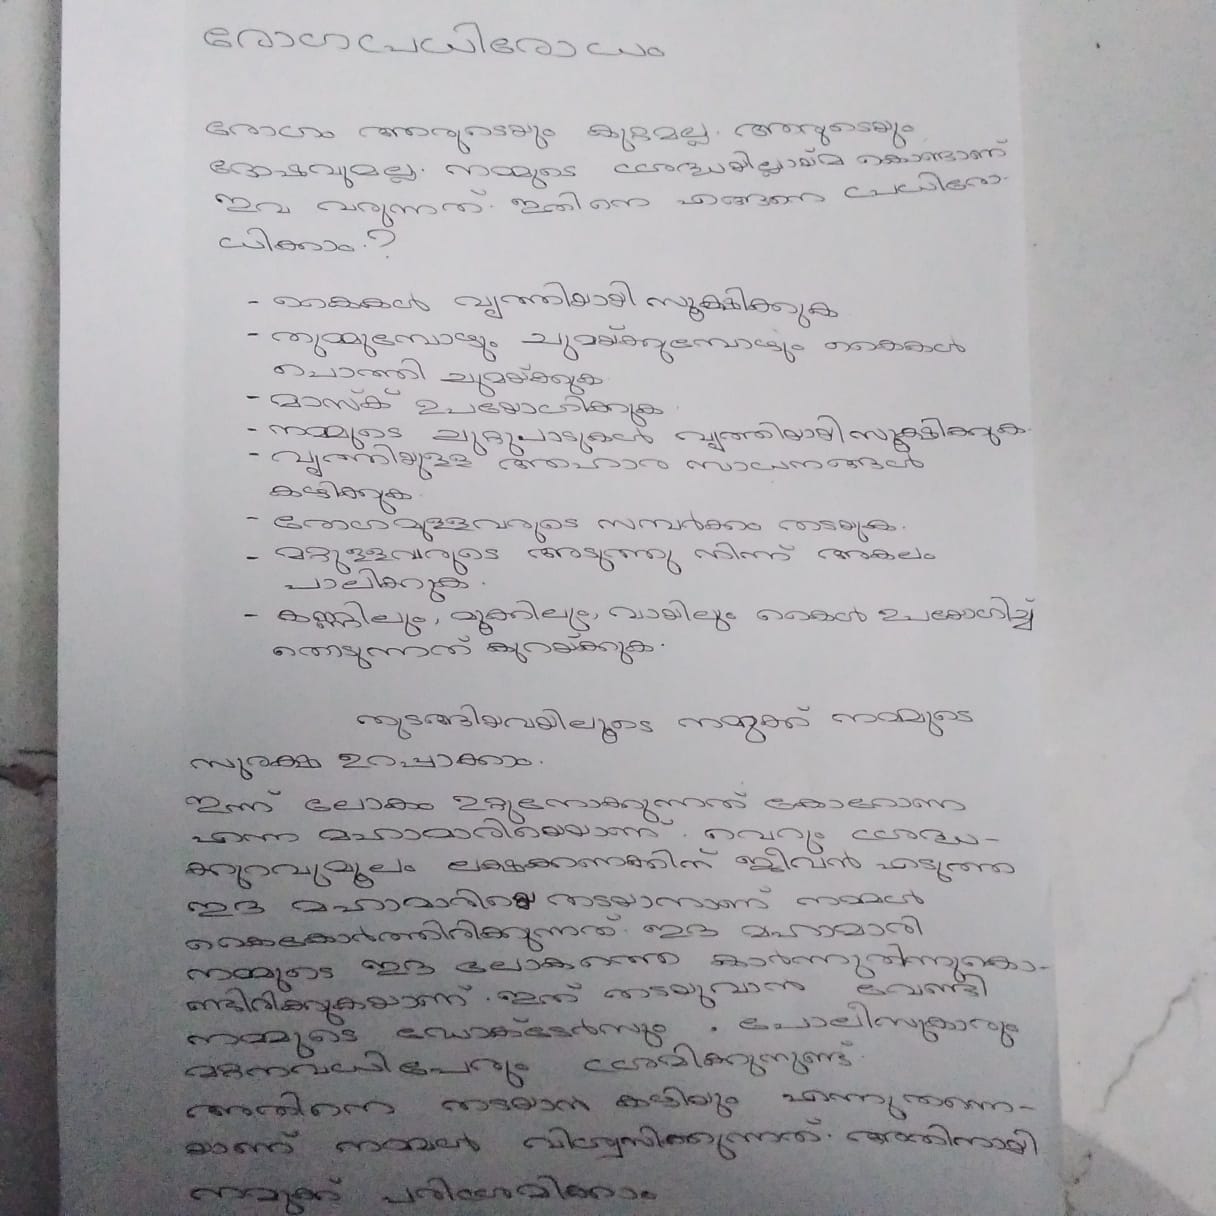 രോഗപ്രധിരോധം
രോഗം ആരുടെയും കുറ്റമല്ല. ആരുടെയും
ദോഷവുമല്ല. നമ്മുടെ ശ്രദ്ധയില്ലായ്മ കൊണ്ടാണ്
ഇവ വരുന്നത്. ഇതിനെ എങ്ങനെ പ്രധിരോ-
ധിക്കാം.?
- കൈകൾ വൃത്തിയായി സൂക്ഷിക്കുക
- തുമ്മുമ്പോളും ചുമയ്ക്കുമ്പോളും കൈകൾ
പൊത്തി ചുമയ്ക്കുക
- മാസ്ക് ഉപയോഗിക്കുക.
- നമ്മുടെ ചുറ്റുപാടുകൾ വൃത്തിയായി സൂക്ഷിക്കുക.
- വൃത്തിയുള്ള ആഹാര സാധനങ്ങൾ
കഴിക്കുക.
- രോഗമുള്ളവരുടെ സമ്പർക്കം തടയുക.
- മറ്റുള്ളവരുടെ അടുത്തു നിന്ന് അകലം
പാലിക്കുക.
- കണ്ണിലും, മൂക്കിലും, വായിലും കൈൾ ഉപകോഗിച്ച്
തൊടുന്നത് കുറയ്ക്കുക.
തുടങ്ങിയവയിലൂടെ നമുക്ക് നമ്മുടെ
സുരക്ഷ ഉറപ്പാക്കാം.
ഇന്ന് ലോകം ഉറ്റുനോക്കുന്നത് കോറോണ
എന്ന മഹാമാരിയെയാണ്. വെറും ശ്രദ്ധ-
ക്കുറവുമൂലം ലക്ഷക്കണക്കിന് ജീവൻ എടുത്ത
ഇൗ മഹാമാരിയെ തടയാനാണ് നമ്മൾ
കൈകോർത്തിരിക്കുന്നത്. ഇൗ മഹാമാരി
നമ്മുടെ ഇൗ ലോകത്തെ കാർന്നുതിന്നുകൊ-
ണ്ടിരിക്കുകയാണ്. ഇത് തടയുവാൻ വേണ്ടി
നമ്മുടെ ഡോക്ടേർസും, പോലിസുകാരും
മറ്റനവധിപേരും ശ്രമിക്കുന്നുണ്ട്.
അതിനെ തടയാൻ കഴിയും എന്നുതന്നെ-
യാണ് നമ്മൾ വിശ്വസിക്കുന്നത്. അതിനായി
നമുക്ക് പരിശ്രമിക്കാം